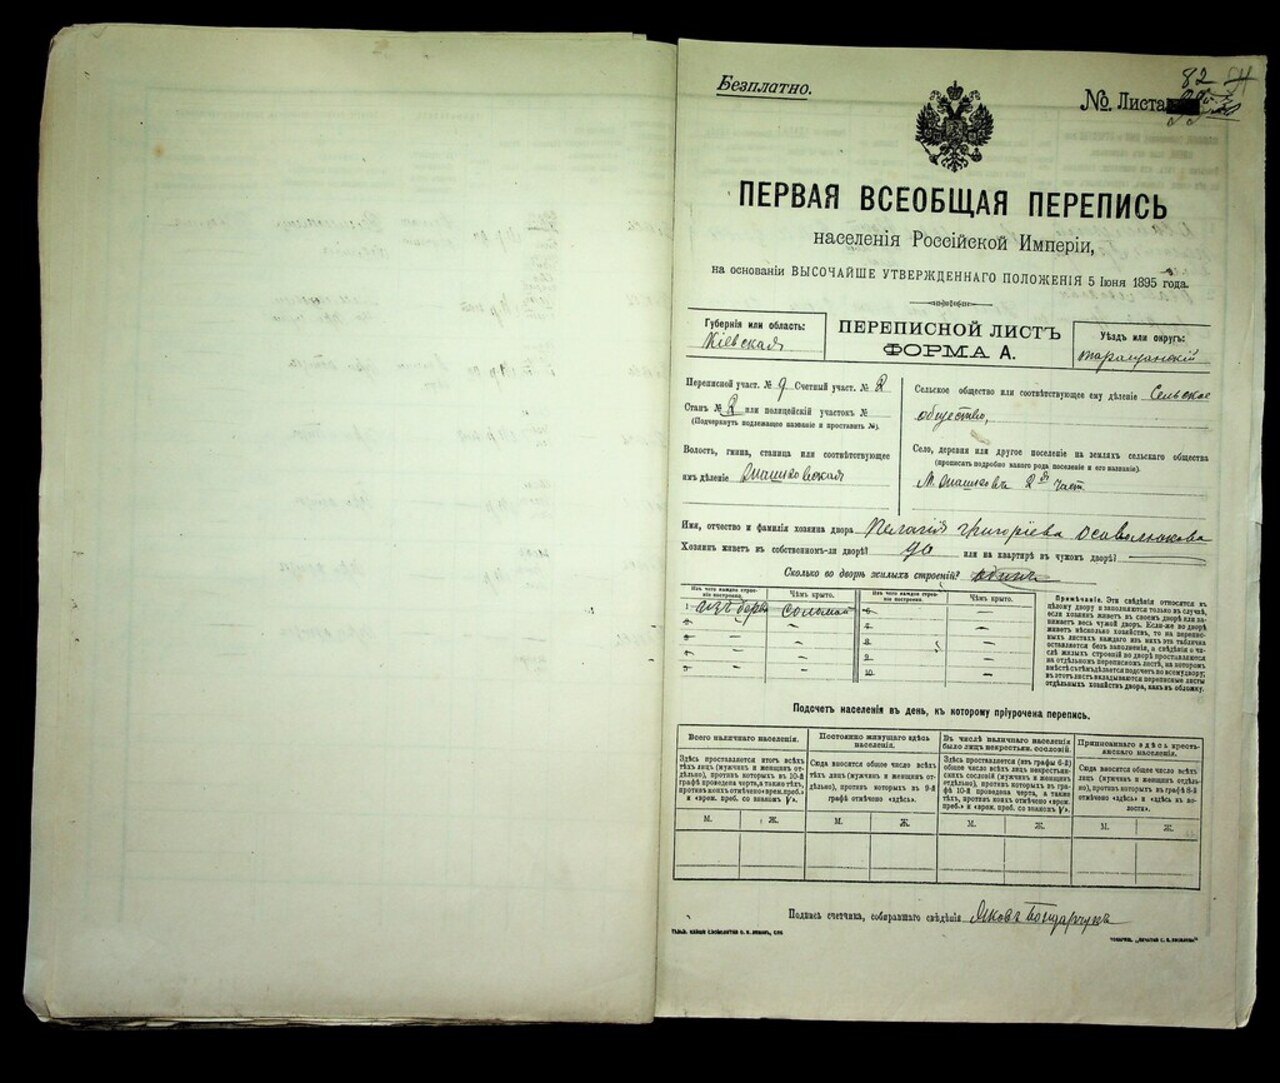 Безплатно.
№. Листа
82
ПЕРВАЯ ВСЕОБЩАЯ ПЕРЕПИСЬ
населенія Россійской Имперіи,
на основаніи ВЫСОЧАЙШЕ УТВЕРЖДЕННАГО ПОЛОЖЕНІЯ 5 Іюня 1895 года.
Губернія или область:
Кіевская
ПЕРЕПИСНОЙ ЛИСТЪ
ФОРМА А.
Уѣздъ или округъ:
Таращанскій
Переписной участ. № 9 Счетный участ. № 2
Станъ № 2 или полицейскій участокъ №
(Подчеркнуть подлежащее названіе и проставить №).
Волость, гмина, станица или соотвѣтствующее
имъ дѣленіе
Сельское общество или соотвѣтствующее ему дѣленіе Сельское
общество,
Село, деревня или другое поселеніе на земляхъ сельскаго общества
(прописать подробно какого рода поселеніе и его названіе).
М. 2 част.
Имя, отчество и фамилія хозяина двора Пелагія Григоріева
Хозяинъ живетъ въ собственномъ-ли дворѣ? да или на квартирѣ въ чужомъ дворѣ?
Сколько во дворѣ жилыхъ строеній?
Изъ чего каждое строеніе построено.
Чѣмъ крыто.
Изъ чего каждое строеніе построено.
Чѣмъ крыто.
1 изъ соломой 6
2 7
3 8
4 9
5 10
Примѣчаніе. Эти свѣдѣнія относятся къ
цѣлому двору и заполняются только въ случаѣ,
если хозяинъ живетъ въ своемъ дворѣ или занимаетъ
весь чужой дворъ. Если-же во дворѣ
живетъ нѣсколько хозяйствъ, то на переписныхъ
листахъ каждаго изъ нихъ эта табличка
оставляется безъ заполненія, а свѣдѣнія о числѣ
жилыхъ строеній во дворѣ проставляются
на отдѣльномъ переписномъ листѣ, на которомъ
вмѣстѣ съ тѣмъ дѣлается подсчетъ по всему двору;
въ этотъ листъ вкладываются переписные листы
отдѣльныхъ хозяйствъ двора, какъ въ обложку.
Подсчетъ населенія въ день, къ которому пріурочена перепись.
Всего наличнаго населенія.
Здѣсь проставляется итогъ всѣхъ
тѣхъ лицъ (мужчинъ и женщинъ отдѣльно),
противъ которыхъ въ 10-й
графѣ проведена черта, а также тѣхъ,
противъ коихъ отмѣчено «врем. преб.»
и «врем. преб. со знакомъ V».
Постоянно живущаго здѣсь
населенія.
Сюда вносится общее число всѣхъ
тѣхъ лицъ (мужчинъ и женщинъ отдѣльно),
противъ которыхъ въ 9-й
графѣ отмѣчено «здѣсь».
Въ числѣ наличнаго населенія
было лицъ некрестьян. сословій.
Здѣсь проставляется (изъ графы 6-й)
общее число всѣхъ лицъ некрестьянскихъ
сословій (мужчинъ и женщинъ
отдѣльно), противъ которыхъ въ графѣ
10-й проведена черта, а также
тѣхъ, противъ коихъ отмѣчено «врем.
преб.» и «врем. преб. со знакомъ V».
Приписаннаго здѣсь крестьянскаго
населенія.
Сюда вносится общее число всѣхъ
лицъ (мужчинъ и женщинъ отдѣльно),
противъ которыхъ въ графѣ 8-й
отмѣчено «здѣсь» и «здѣсь въ волости».
М. Ж. М. Ж. М. Ж. М. Ж.
Подпись счетчика, собиравшаго свѣдѣнія Яковъ Бондарчукъ